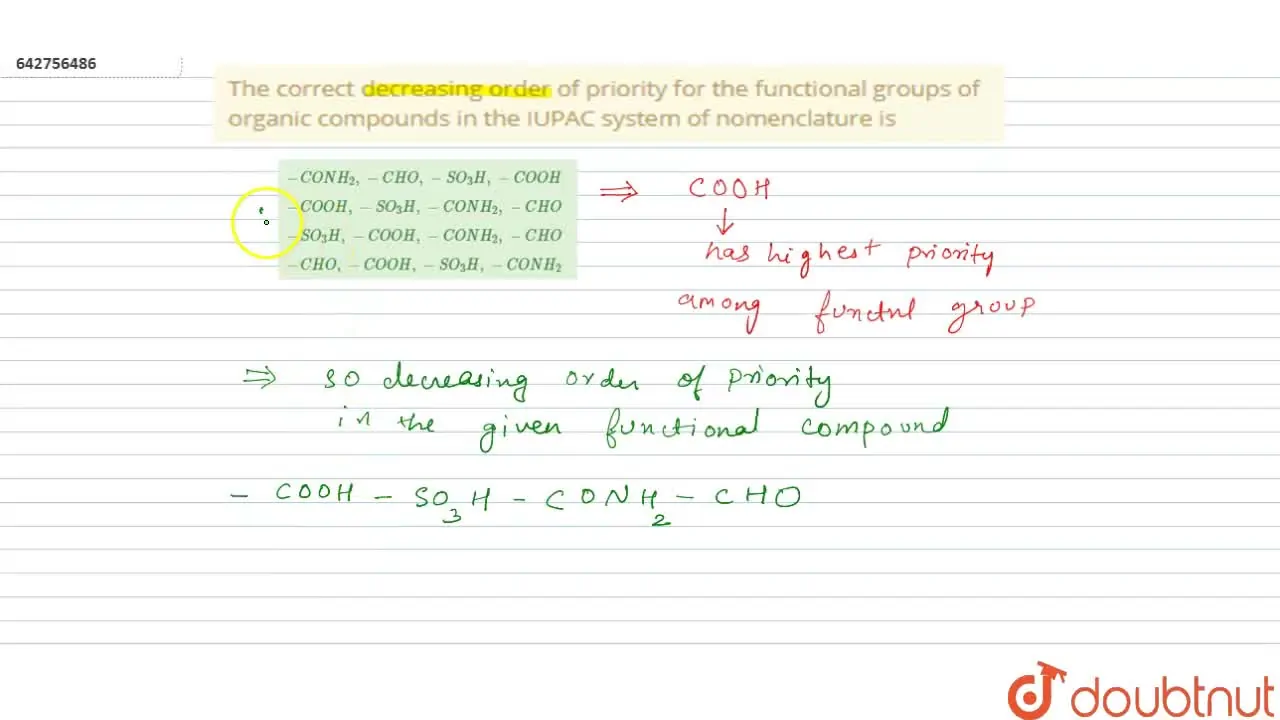 642756486
The correct decreasing order of priority for the functional groups of
organic compounds in the IUPAC system of nomenclature is
-CONH₂, -CHO, -SO₃H, -COOH
-COOH, -SO₃H, -CONH₂, -CHO
-SO₃H, -COOH, -CONH₂, -CHO
-CHO, -COOH, -SO₃H, -CONH₂
⇒ COOH
↓
has highest priority
among functnl group
⇒ so decreasing order of priority
in the given functional compound
- COOH - SO₃H - CONH₂ - CHO
doubtnut